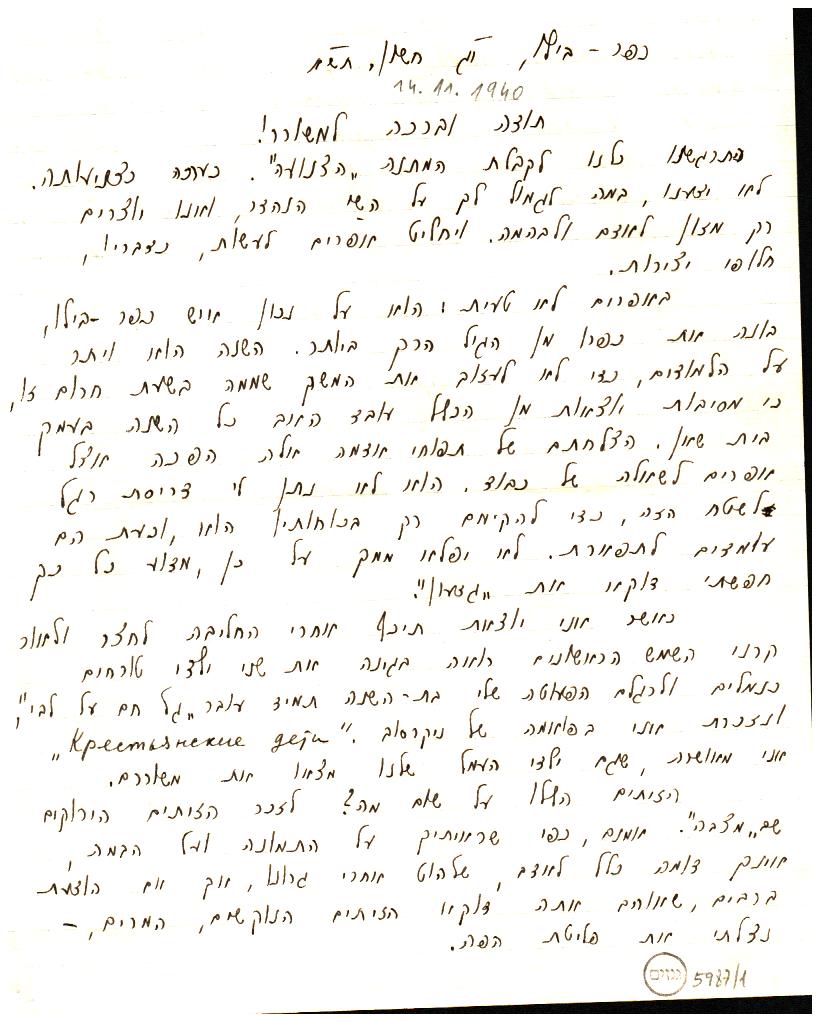 כפר - ביל"ו, י"ג חשון, תש"א
14. 11. 1940
תודה וברכה למשורר!
התרגשנו כלנו לקבלת המתנה "הצנועה". כערכה כצניעותה.
לא ידענו, במה לגמול לך על השי הנהדר, אנו יוצרים
רק מזון לאדם ולבהמה. יחליט אפרים לעשות, כדבריו,
חלופי יצירות.
באפרים לא טעית: הוא על נכון איש כפר-ביל"ו,
בונה את כפרו מן הגיל הרך ביותר. השנה הוא ויתר
על הלמודים, כדי לא לעזוב את המשק שממה בשעת חרום זו,
כי מסיבות יוצאות מן הכלל עובד האב כל השנה בעמק
בית שאן. הצלחתם של תפוחי אדמה אלה הפכה אצל
אפרים לשאלה של כבוד. הוא לא נתן לי דריסת רגל
לשטח הזה, כדי להקימם רק בכוחותיו הוא, וכעת הם
עומדים לתפארת. לא יפלא ממך על כן, מדוע כל כך
חפשתי דוקא את "גדעון".
כאשר אני יוצאת תיכף אחרי החליבה לחצר ולאור
קרני השמש הראשונים רואה בגינה את שני ילדי טורחים
כנמלים ולרגלם הפעוטה שלי בת-השנה תמיד עובר "גל חם על לבי",
ונזכרת אני בפואמה של ניקרסוב. "Крестьянские дети",
אני מאושרת, שגם ילדי העמל שלנו מצאו את משוררם.
הזיתים העלו על שום מה? לזכר הזיתים הירוקים
שב"מצבה". אומנם, כפי שראיתיך על התמונה ועל הבמה,
אינך דומה כלל לאדם, שלהוט אחרי גרונו, אך אם הודעת
ברבים, שאוהב אתה דוקא הזיתים הנוקשים, המרים, -
נצלתי את פליטת הפה.
גנזים
5987/1